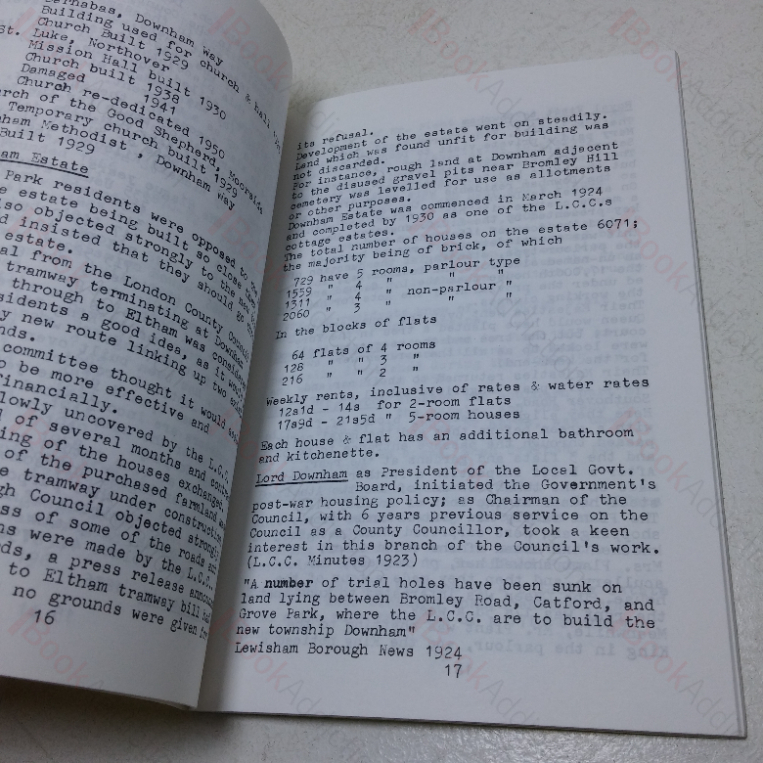 Barnabas, Downham way
Building used for church & hall
Church Built 1929
St. Luke, Northover
Mission Hall built 1930
Church built 1938
Damaged 1941
Church re-dedicated 1950
Church of the Good Shepherd, Moorside
Temporary church built 1929
Methodist, Downham way
Built 1929
Estate
Park residents were opposed to
estate being built so close
also objected strongly to the
insisted that they should
estate.
from the London County Council
tramway terminating at Downham
through to Eltham was considered
residents a good idea, as it would
new route linking up two
committee thought it would
be more effective and
financially.
slowly uncovered by the L.C.C.
of several months and
of the houses exchanged,
of the purchased farmland
tramway under construction
Council objected strongly
of some of the roads
were made by the L.C.C.
a press release
to Eltham tramway bill
no grounds were given for
16
its refusal.
Development of the estate went on steadily.
Land which was found unfit for building was
not discarded.
For instance, rough land at Downham adjacent
to the disused gravel pits near Bromley Hill
cemetery was levelled for use as allotments
or other purposes.
Downham Estate was commenced in March 1924
and completed by 1930 as one of the L.C.C.s
cottage estates.
The total number of houses on the estate 6071;
the majority being of brick, of which
729 have 5 rooms, parlour type
1559 " 4 " " "
1311 " 4 " non-parlour "
2060 " 3 " " "
In the blocks of flats
64 flats of 4 rooms
128 " " 3 "
216 " " 2 "
Weekly rents, inclusive of rates & water rates
12s1d - 14s for 2-room flats
17s9d - 21s5d " 5-room houses
Each house & flat has an additional bathroom
and kitchenette.
Lord Downham as President of the Local Govt.
Board, initiated the Government's
post-war housing policy; as Chairman of the
Council, with 6 years previous service on the
Council as a County Councillor, took a keen
interest in this branch of the Council's work.
(L.C.C. Minutes 1923)
"A number of trial holes have been sunk on
land lying between Bromley Road, Catford, and
Grove Park, where the L.C.C. are to build the
new township Downham"
Lewisham Borough News 1924
17